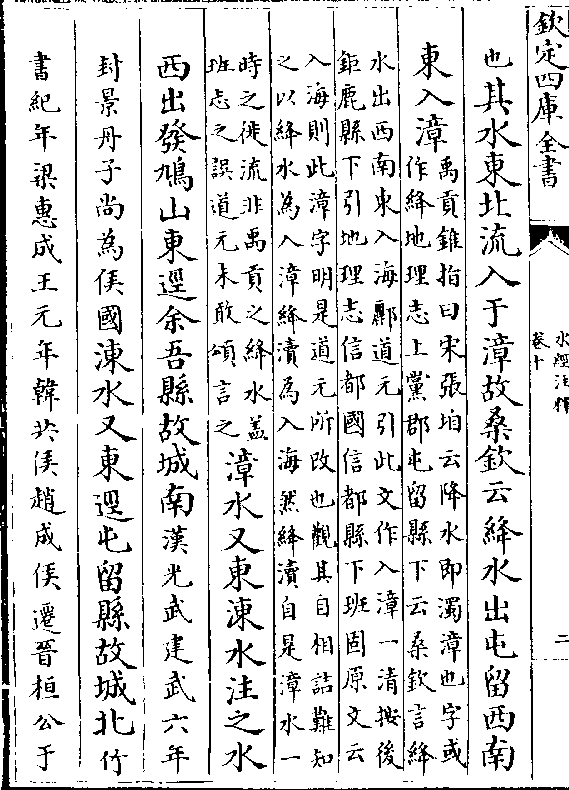 欽定四庫全書
水經注釋
卷十
二
也其水東北流入于漳故桑欽云絳水出屯留西南
東入漳禹貢錐指曰宋張垍云降水即濁漳也字或
作絳地理志上黨郡屯留縣下云桑欽言絳
水出西南東入海酈道元引此文作入漳一清按後
鉅鹿縣下引地理志信都國信都縣下班固原文云
入海則此漳字明是道元所改也觀其自相詰難知
之以絳水為入漳絳瀆為入海然絳瀆自是漳水一
時之徙流非禹貢之絳水蓋
班志之誤道元未敢頌言之漳水又東涷水注之水
西出發鳩山東逕余吾縣故城南漢光武建武六年
封景丹子尚為侯國涷水又東逕屯留縣故城北竹
書紀年梁惠成王元年韓共侯趙成侯遷晉桓公于